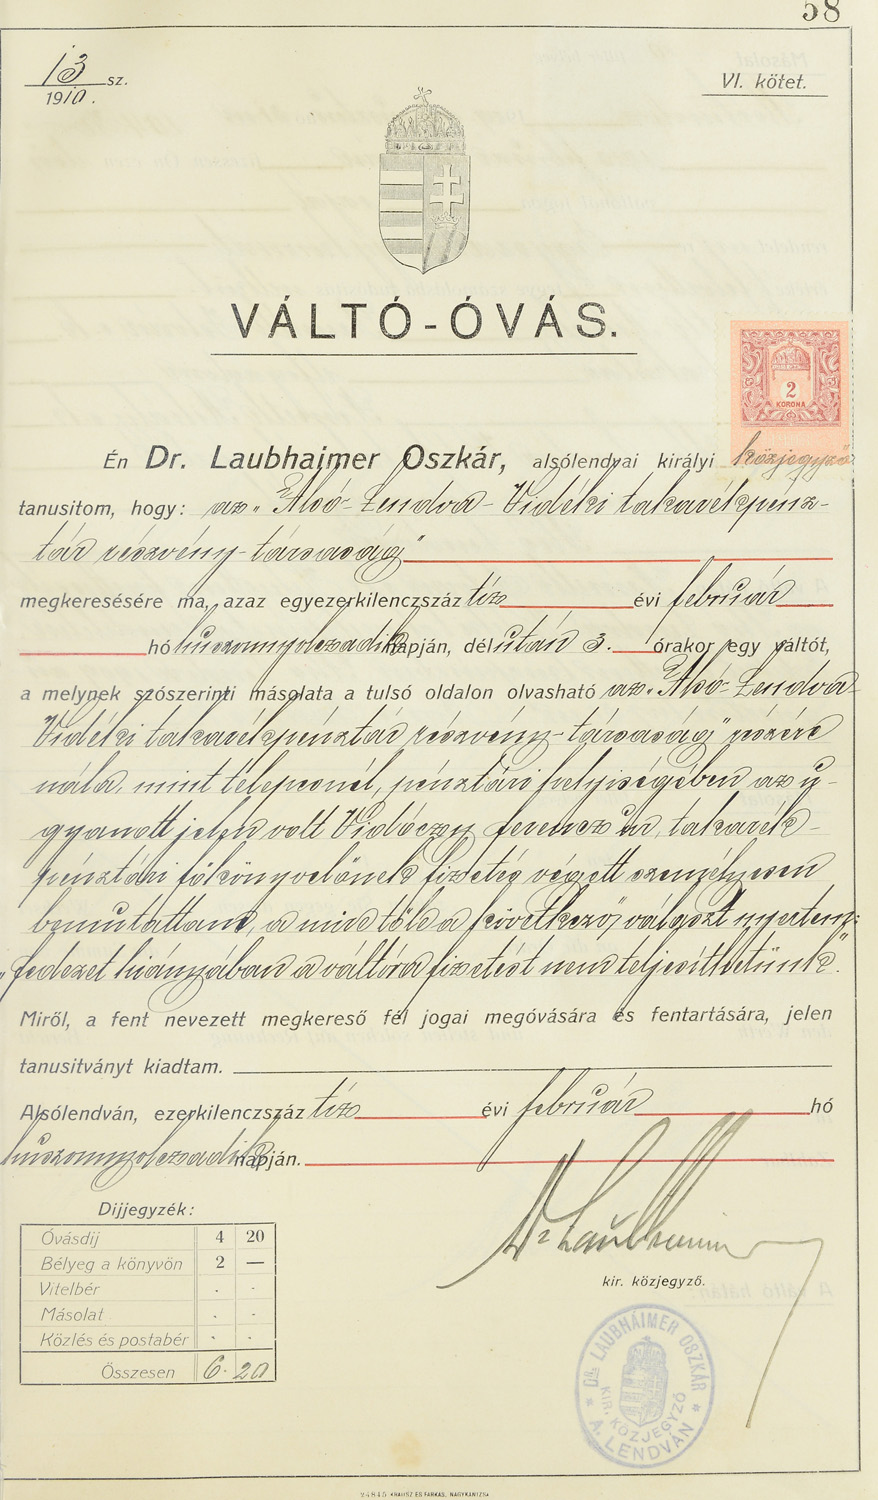 58
13 sz.
1910.
VI. kötet.
VÁLTÓ-ÓVÁS.
2
KORONA
Én Dr. Laubhaimer Oszkár, alsólendvai királyi közjegyző
tanusitom, hogy: az „Alsó-Lendva-Vidéki takarékpénz-
tár részvény-társaság"
megkeresésére ma, azaz egyezerkilenczszáz tíz évi február
hó huszonnyolczadik napján, délután 3. órakor egy váltót,
a melynek szószerinti másolata a tulsó oldalon olvasható az „Alsó-Lendva
Vidéki takarékpénztár részvény-társaság" részére
nála, mint telepesnél, pénztári helyiségében az u-
gyanott jelen volt Vidóczy Ferencz úr, takarék-
pénztári főkönyvelőnek fizetés végett személyesen
bemutattam, a mire tőle a következő választ nyertem:
„fedezet hiányában a váltóra fizetést nem teljesíthetünk".
Miről, a fent nevezett megkereső fél jogai megóvására és fentartására, jelen
tanusitványt kiadtam.
Alsólendván, ezerkilenczszáz tíz évi február hó
huszonnyolczadik napján.
Dijjegyzék:
Óvásdij 4 20
Bélyeg a könyvön 2 —
Vitelbér . .
Másolat . .
Közlés és postabér . .
Összesen 6. 20
Dr Laubhaimer
kir. közjegyző.
DR. LAUBHÁIMER OSZKÁR
KIR. KÖZJEGYZŐ
* A. LENDVÁN *
24845 KRAUSZ ÉS FARKAS, NAGYKANIZSA